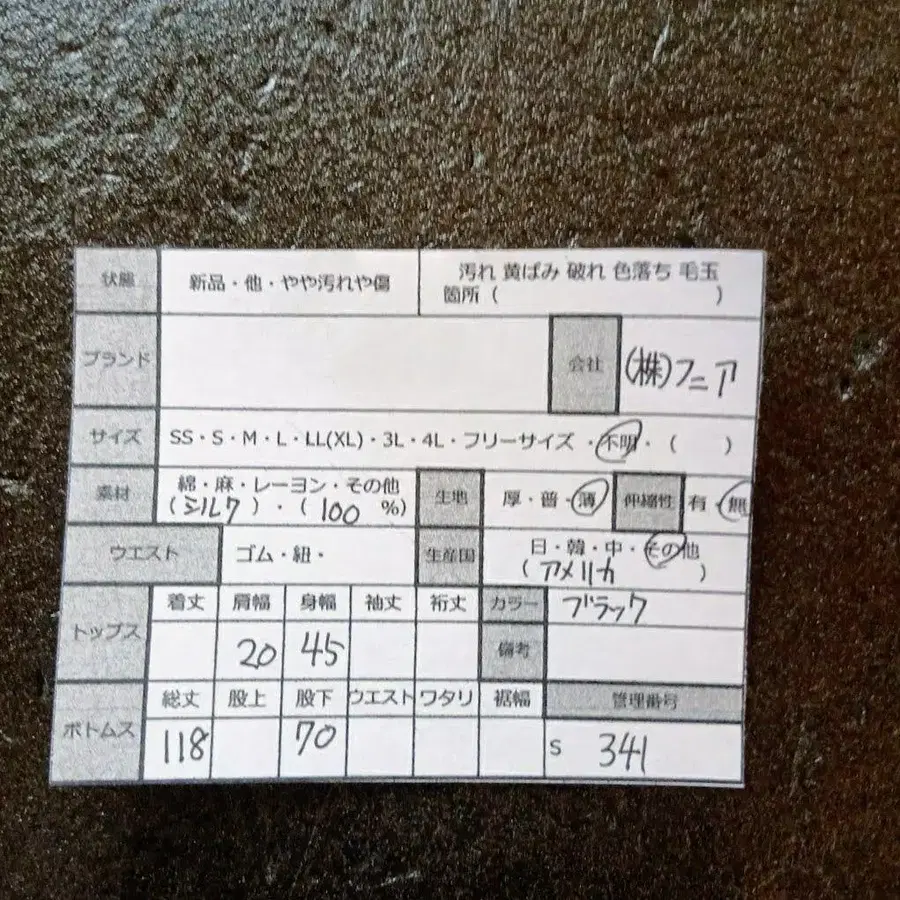 状態 新品・他・やや汚れや傷 汚れ 黄ばみ 破れ 色落ち 毛玉
箇所（ ）
ブランド 会社 (株)フニア
サイズ SS・S・M・L・LL(XL)・3L・4L・フリーサイズ ・不明・（ ）
素材 綿・麻・レーヨン・その他 生地 厚・普・薄 伸縮性 有・無
（シルク）・（100 %）
ウエスト ゴム・紐・ 生産国 日・韓・中・その他
（アメリカ ）
トップス 着丈 肩幅 身幅 袖丈 裄丈 カラー ブラック
20 45 備考
ボトムス 総丈 股上 股下 ウエスト ワタリ 裾幅 管理番号
118 70 S 341